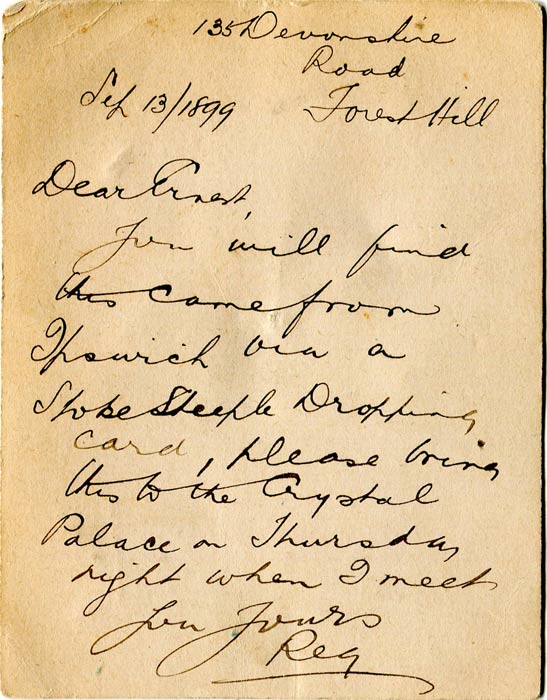 135 Devonshire
Road
Sep 13/1899 Forest Hill
Dear Ernest,
You will find
this came from
Ipswich via a
Stoke Steeple Dropping
card, please bring
this to the Crystal
Palace on Thursday
night when I meet
you Yours
Reg